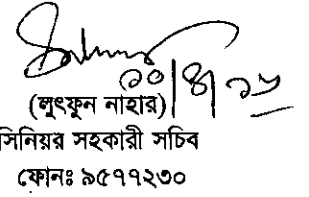 ১০/৪/১৬
(লুৎফুন নাহার)
সিনিয়র সহকারী সচিব
ফোনঃ ৯৫৭৭২৩০